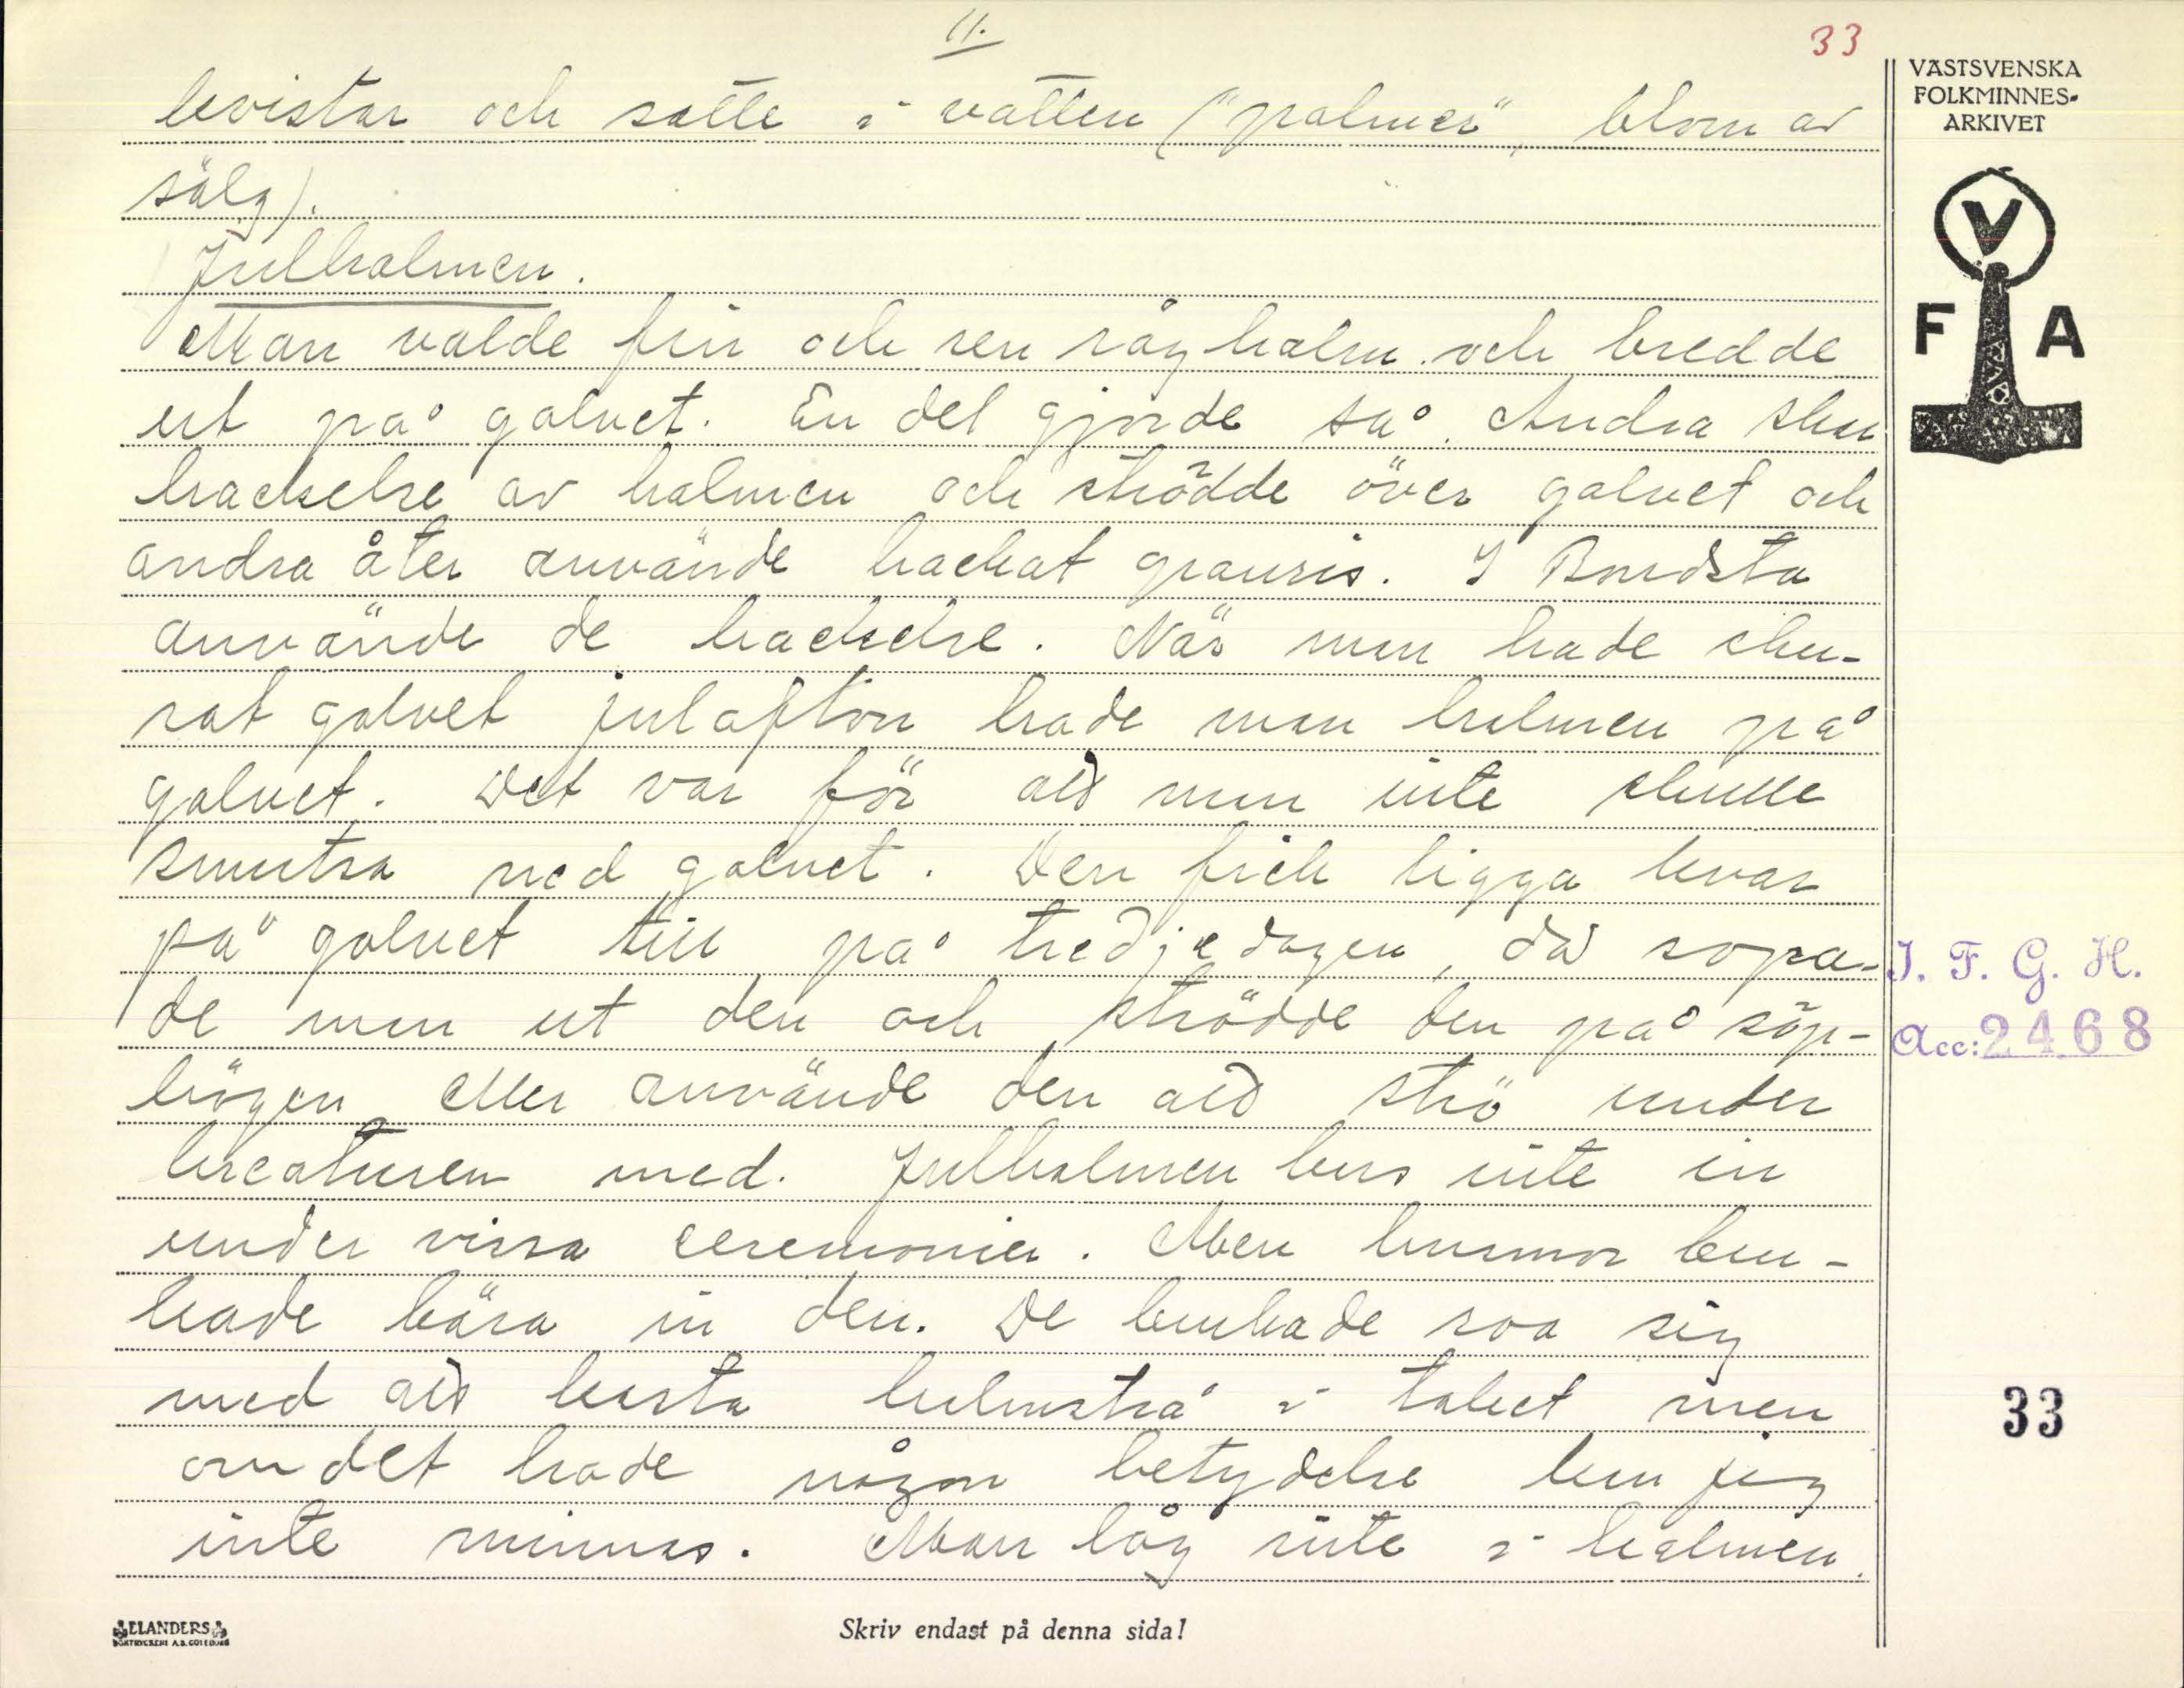 11.
33
kvistar och satte i vatten ("palmer", blom av
sälg).
Julhalmen.
Man valde fin och ren råghalm och bredde
ut på golvet. En del gjorde så. Andra skar
hackelse av halmen och strödde över golvet och
andra åter använde hackat granris. I Bordsta
använde de hackelse. När man hade sku-
rat golvet julafton hade man halmen på
golvet. Det var för att man inte skulle
smutsa ned golvet. Den fick ligga kvar
på golvet till på tredjedagen, då sopa-
de man ut den och strödde den på sop-
högen eller använde den att strö under
kreaturen med. Julhalmen bars inte in
under vissa ceremonier. Men husmor bru-
kade bära in den. De brukade roa sig
med att kasta halmstrå i taket men
om det hade någon betydelse kan jag
inte minnas. Man låg inte i halmen.
VÄSTSVENSKA
FOLKMINNES-
ARKIVET
V
F A
I. F. G. H.
Acc: 2468
33
ELANDERS
BOKTRYCKERI A.B. GÖTEBORG
Skriv endast på denna sida!